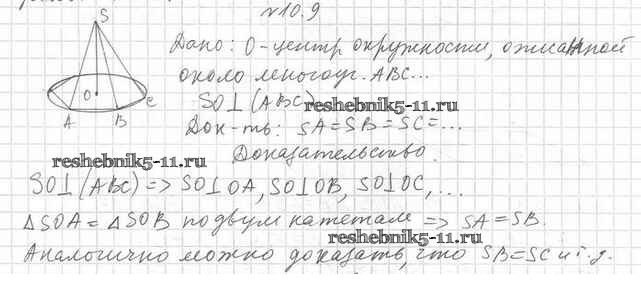 №10.9
S
Дано: О-центр окружности, описанной
около многоуг. ABC...
O
C
A
B
SO⊥(ABC)
reshebnik5-11.ru
Док-ть: SA=SB=SC=...
Доказательство.
reshebnik5-11.ru
SO⊥(ABC)=> SO⊥OA, SO⊥OB, SO⊥OC, ...
ΔSOA=ΔSOB по двум катетам => SA=SB.
reshebnik5-11.ru
Аналогично можно доказать, что SB=SC и т.д.